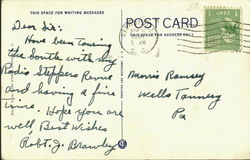 THIS SPACE FOR WRITING MESSAGES
POST CARD
THIS SPACE FOR ADDRESS ONLY
Dear Sir:
Have been touring
the South with my
Radio Steppers Revue
and having a fine
time. Hope you are
well, Best Wishes
Robt. J. Brawley
Morris Ramsey
Wells Tannery
Pa